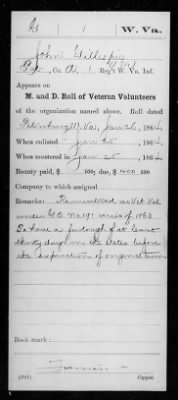 G | 1 | W. Va.
John Gillespie
Pvt., Co. A, 1 Reg't W. Va. Inf.
Appears on
M. and D. Roll of Veteran Volunteers
of the organization named above. Roll dated
Petersburg W. Va., Jan 26, 1864
When enlisted Jan 25, 1864
When mustered in Jan 25, 1864
Bounty paid $ 100; due, $ 400 100
Company to which assigned
Remarks: Remustered as Vet Vol
under G.O. No 191 series of 1863
To have a furlough of at least
thirty days in the States before
the expiration of original term
Book mark:
Copyist.